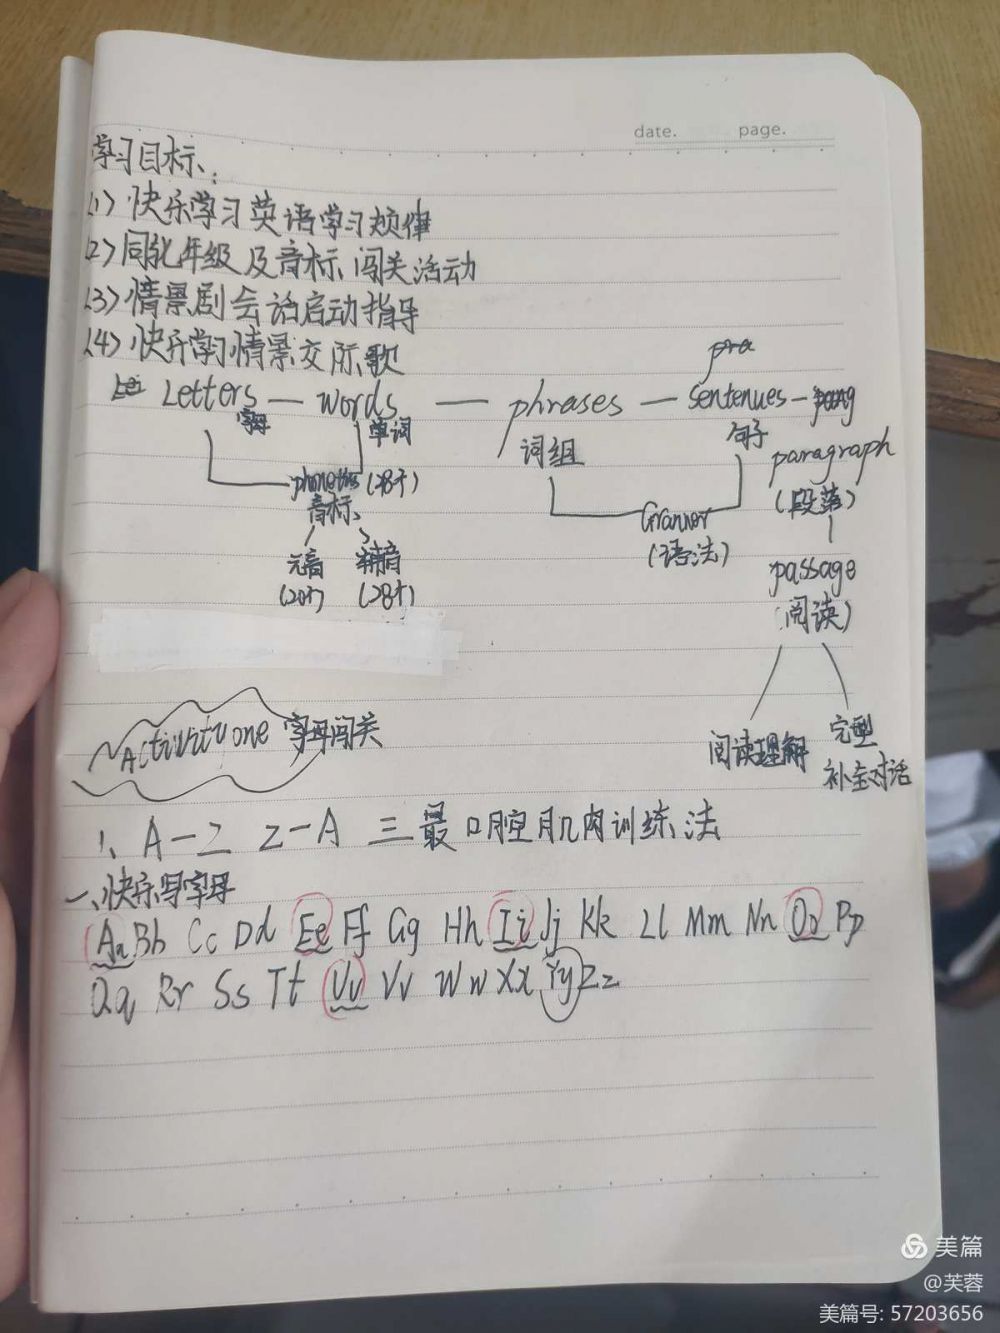 date. page.
学习目标:
(1) 快乐学习英语学习规律
(2) 同 年级及音标闯关活动
(3) 情景剧会话启动指导
(4) 快乐学习情景交际歌
pra
Letters — words — phrases — Sentenues —
字母 单词 词组 句子
phonetics (48个) paragraph
音标 Grammer (段落)
(语法)
元音 辅音 passage
(20个) (28个) (阅读)
Activity one 字母闯关
阅读理解 完型
补全对话
1、A-Z Z-A 三最口腔肌肉训练法
一、快乐写字母
Aa Bb Cc Dd Ee Ff Gg Hh Ii Jj Kk Ll Mm Nn Oo Pp
Qq Rr Ss Tt Uu Vv Ww Xx Yy Zz
美篇
@芙蓉
美篇号: 57203656